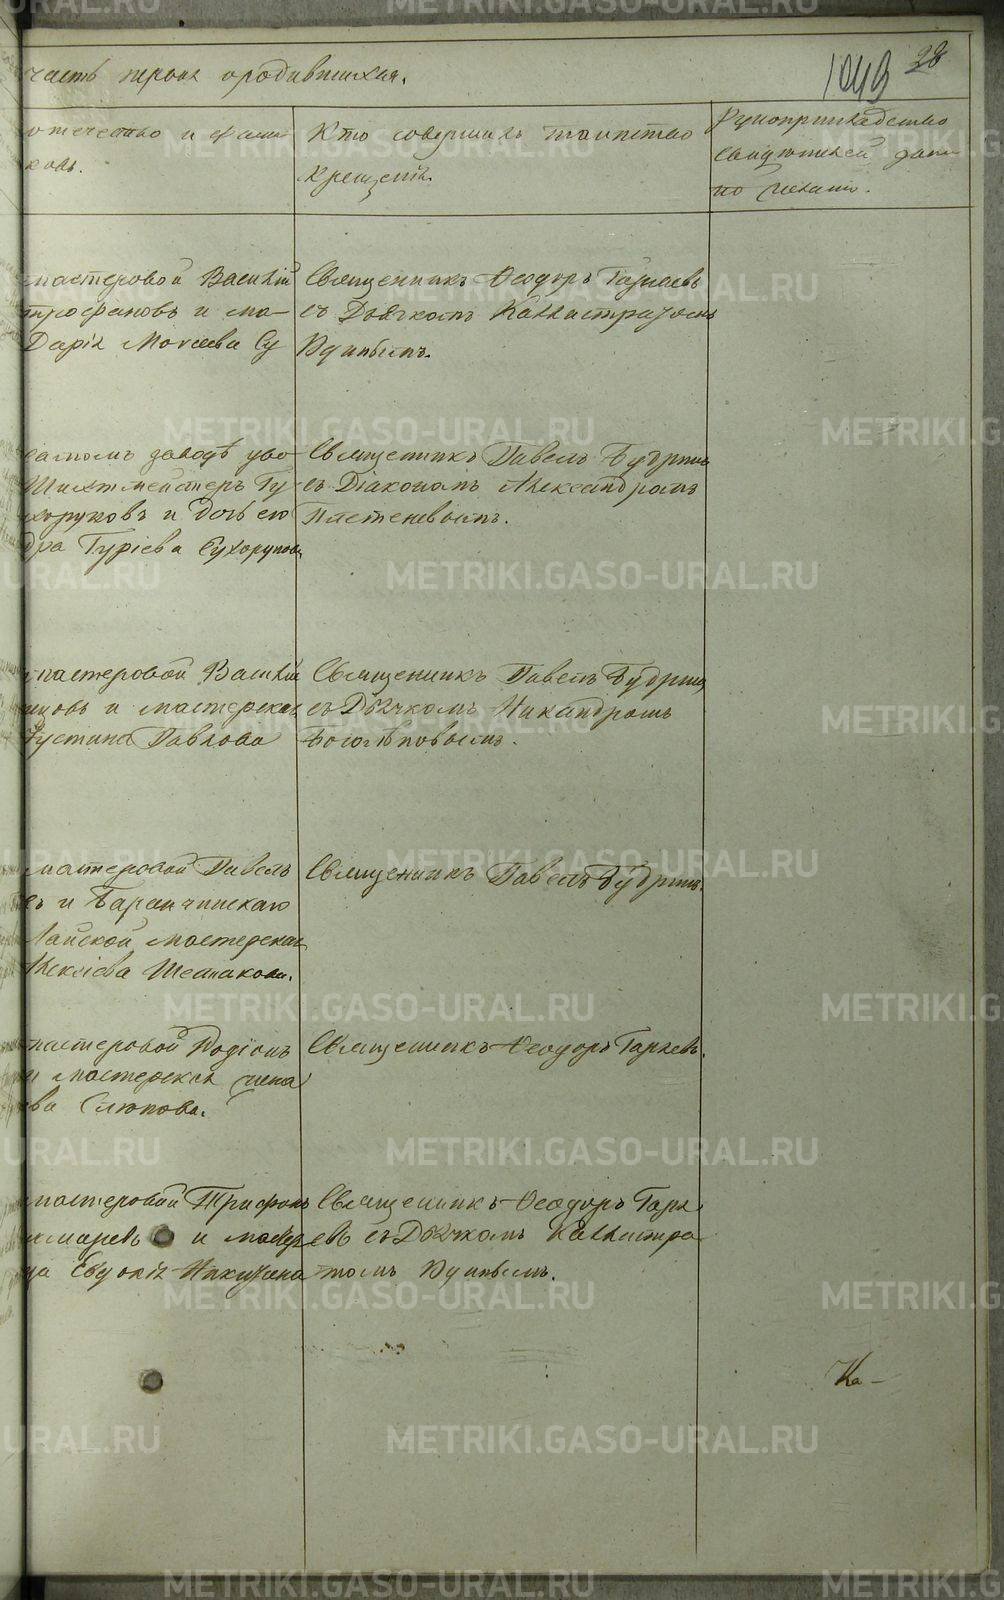 часть первая о родившихся.
1043
28
отечество и фами
ковъ.
Кто совершалъ таинство
крещенія.
Рукоприкладство
свидѣтелей запи
по желанію.
мастеровой Василій
трофановъ и ма-
Дарія Моисеева Су
Священникъ Ѳеодоръ
съ Дьячкомъ Каллистратомъ
Удинымъ.
самомъ заводѣ уво
Шихтмейстеръ Гу
хоруковъ и дочь его
дра Гуріева Сухорукова.
Священникъ Павелъ Будринъ
съ Діакономъ Александромъ
мастеровой Василій
и мастерская
Устина Павлова
Священникъ Павелъ Будринъ
съ Дьячкомъ Никандромъ
Боголѣповымъ.
мастеровой Павелъ
въ и Баранчинскаго
Лайской мастерская
Шешакова.
Священникъ Павелъ Будринъ.
мастеровой Родіонъ
и мастерская жена
ева
Священникъ Ѳеодоръ
мастеровой Трифонъ
и мастер
ца Евдокія
Священникъ Ѳеодоръ
евъ съ Дьячкомъ Каллистра
томъ Удинымъ.
Ка-
METRIKI.GASO-URAL.RU